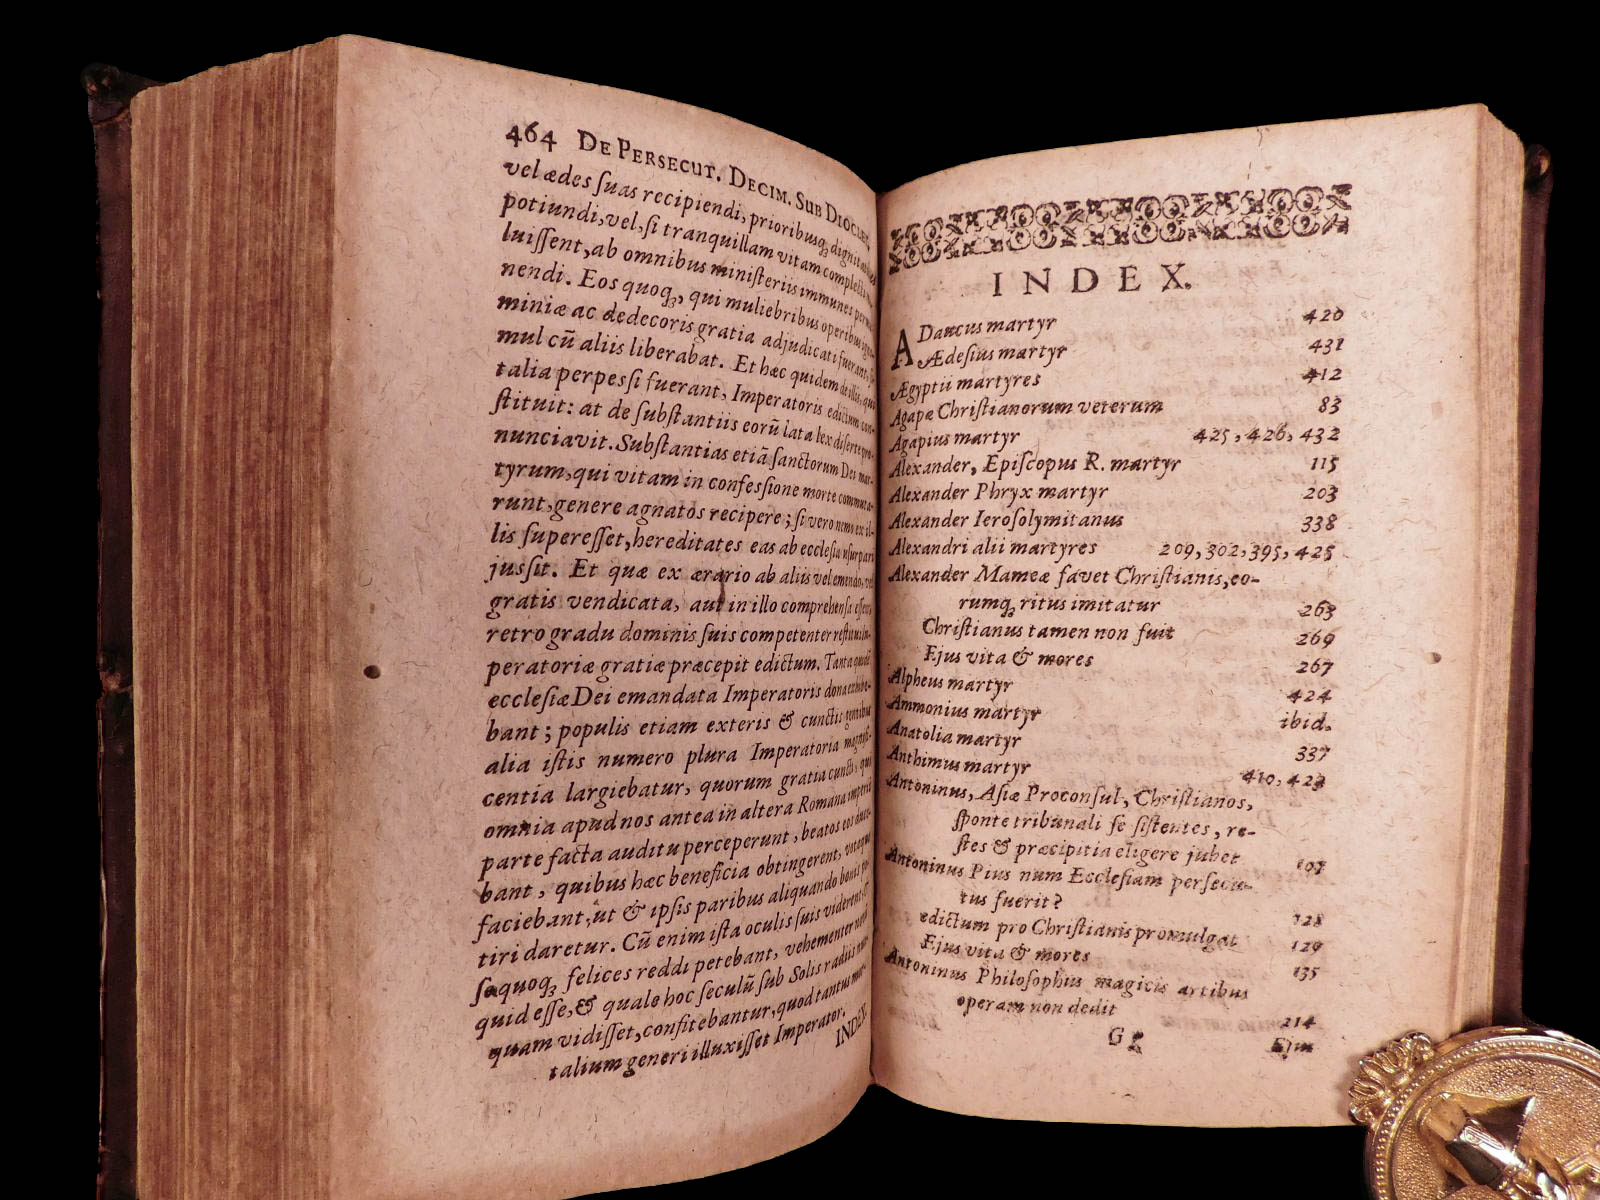 464 DE PERSECUT. DECIM. SUB DIOCLET.
vel ædes ſuas recipiendi, prioribusq; dignitatibus
potiundi, vel, ſi tranquillam vitam complecti ma-
luiſſent, ab omnibus miniſteriis immunes perma-
nendi. Eos quoq;, qui muliebribus operibus igno-
miniæ ac dedecoris gratia adjudicati fuerant,
mul cū aliis liberabat. Et hæc quidem de illis, qui
talia perpeſſi fuerant, Imperatoris edictum con-
ſtituit: at de ſubſtantiis eorū lata lex diſerte pro-
nunciavit. Subſtantias etiā ſanctorum Dei mar-
tyrum, qui vitam in confeſſione morte commuta-
runt, genere agnatòs recipere; ſi vero nemo ex il-
lis ſupereſſet, hereditates eas ab eccleſia uſurpari
juſſit. Et quæ ex ærario ab aliis vel emendo, vel
gratis vendicata, aut in illo comprehenſa eſſent,
retro gradu dominis ſuis competenter reſtitui Im-
peratoriæ gratiæ præcepit edictum. Tanta quidē
eccleſiæ Dei emandata Imperatoris dona exhibe-
bant; populis etiam exteris & cunctis gentibus
alia iſtis numero plura Imperatoria magnifi-
centia largiebatur, quorum gratia cuncti, qui
omnia apud nos antea in altera Romana imperii
parte facta auditu perceperunt, beatos eos duce-
bant, quibus hæc beneficia obtingerent, votaque
faciebant, ut & ipſis paribus aliquando bonis po-
tiri daretur. Cū enim iſta oculis ſuis viderent, &
ſequoq; felices reddi petebant, vehementer novū
quid eſſe, & quale hoc ſeculū ſub Solis radiis nun-
quam vidiſſet, confitebantur, quod tantus
talium generi illuxiſſet Imperator.
INDEX.
INDEX.
ADaucus martyr 420
Ædeſius martyr 431
Ægyptii martyres 412
Agapæ Chriſtianorum veterum 83
Agapius martyr 425, 426, 432
Alexander, Epiſcopus R. martyr 115
Alexander Phryx martyr 203
Alexander Ieroſolymitanus 338
Alexandri alii martyres 209, 302, 395, 425
Alexander Mameæ favet Chriſtianis, eo-
rumq; ritus imitatur 263
Chriſtianus tamen non fuit 269
Ejus vita & mores 267
Alpheus martyr 424
Ammonius martyr ibid.
Anatolia martyr 337
Anthimus martyr 410, 423
Antoninus, Aſiæ Proconſul, Chriſtianos,
ſponte tribunali ſe ſiſtentes, re-
ſtes & præcipitia eligere jubet 107
Antoninus Pius num Eccleſiam perſecu-
tus fuerit? 128
edictum pro Chriſtianis promulgat 129
Ejus vita & mores 135
Antoninus Philoſophus magicis artibus
operam non dedit 214
G g Ejus